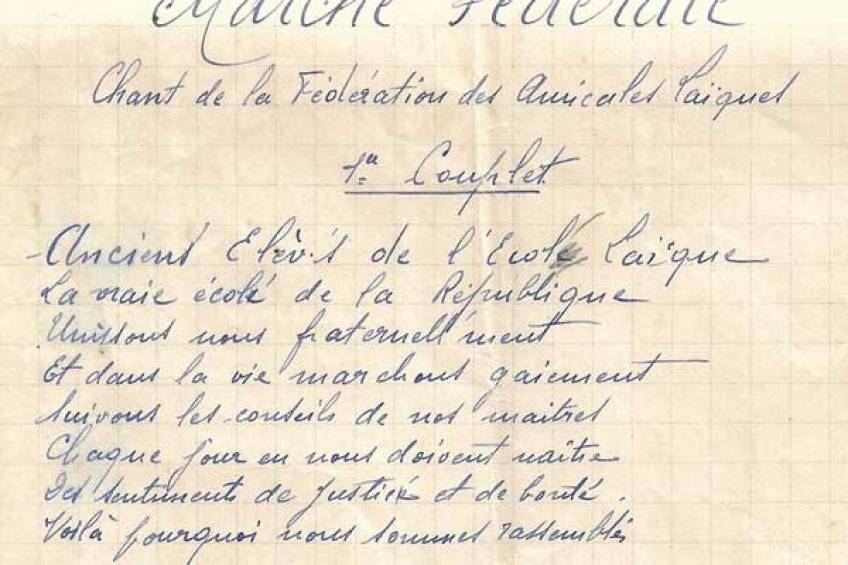 Marche Fédérale
Chant de la Fédération des Amicales Laïques
1er Couplet
Anciens Elèv's de l'Ecole Laïque
La vraie école de la République
Unissons nous fraternell'ment
Et dans la vie marchons gaiement
Suivons les conseils de nos maitres
Chaque jour en nous doivent naître
Des sentiments de Justice et de bonté.
Voilà pourquoi nous sommes rassemblés